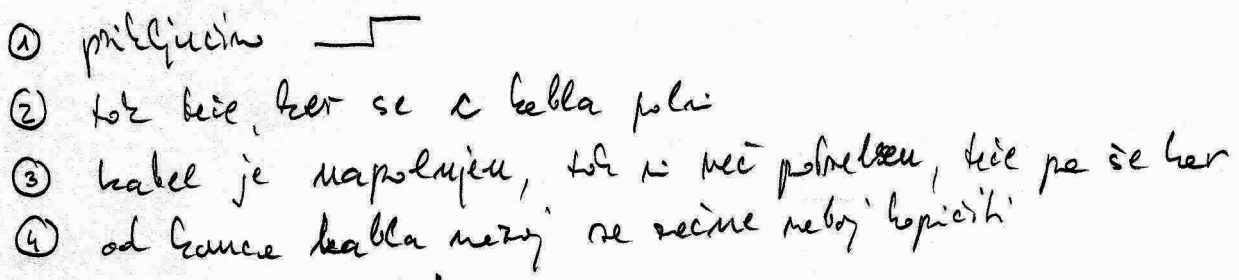 ① priključimo
② tok teče, ker se c kabla polni
③ kabel je napolnjen, tok ni več potreben, teče pa še kar
④ od konca kabla nazaj se začne naboj kopičiti